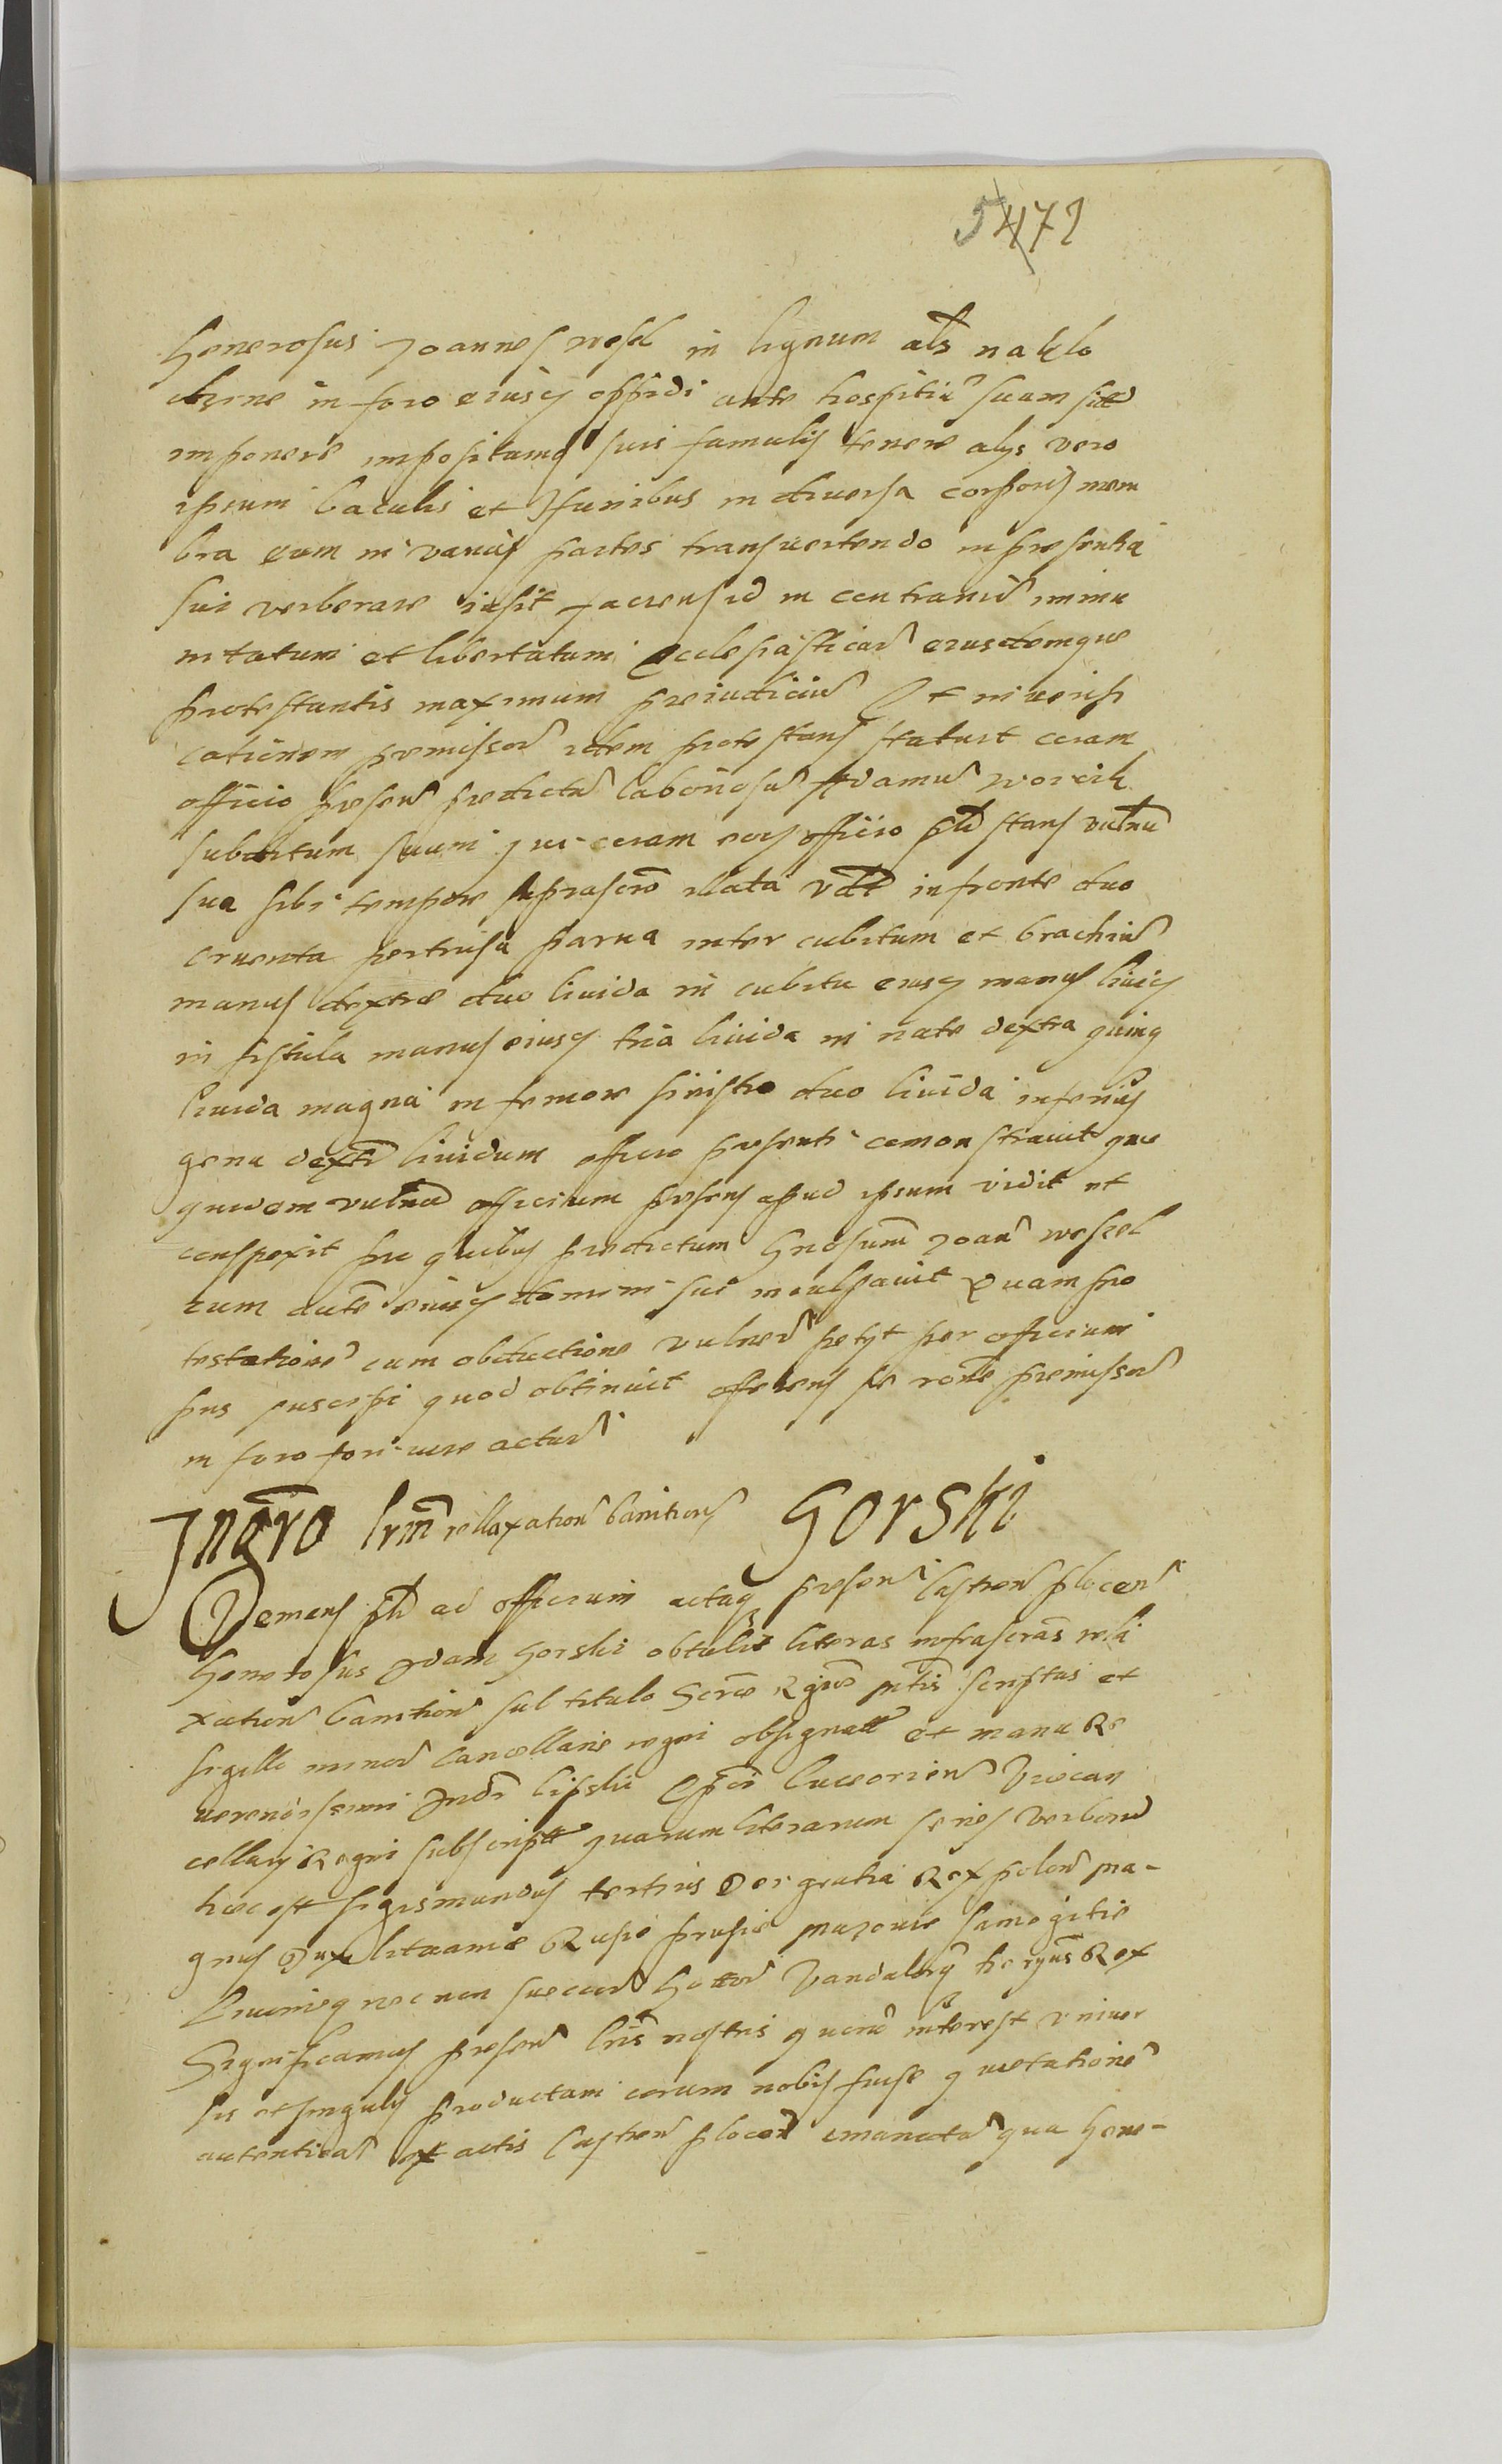 54 472
Generosus Joannes wesel in lignum als na klo
dzine in foro eiusq oppidi ante hospitiu suum sitt
imponere impositumq suis famulis tenere alijs vero
ipsum baculis et funibus in diuersa corporis mem
bra eum in varias partes transuertendo in presentia
sui verberare iusit faciens id in contrariu immu
nitatum et libertatum Ecclesiasticar eiusdemque
protestantis maximum preiudiciu Et in verifi
cationem premissor idem protestans statuit coram
officio presen predictu laboriosu Adamu worcik
subditum suum qui coram eodq officio pld stans vulnu
sua sibi tempore suprascro illata vdlt in fronte duo
cruenta pertrusa parua inter cubitum et brachiu
manus dextre duo liuida in cubitu eiusq manus liuiq
in fistula manus eiusq tria liuida in nate dextra quinq
liuida magna in femore sinistro duo liuida inferius
genu dextr liuidum officio presenti demonstrauit que
quidem vulnera officium presens apud ipsum vidit et
conspexit pro quibus predictum Gnosum Joan weszel
tum dictu eiusq domini sui inculpauit Quam pro
testatione cum obductione vulner petyt per officium
pns suscipi quod obtinuit offerens se rone premissor
in foro fori iure actur
Ingro lrm rellaxation banitions Gorski
Veniens pld ad officium actaq presen Castren plocen
Generosus Adam Gorski obtulit literas infrascras rela
xation banition sub titulo Scrae Rgiae mtis scriptas et
sigillo minor Cancellarie regni obsignatt et manu Re
uerendissimi Andr lipski Epci luceorien Vicecan
cellarij Regni subscriptt quarum literarum series verborum
haec est Sigismundus tertius Dei gratia Rex polon ma-
gnus Dux lituanie Rusie prusie mazouie samogitie
liuonieq nec non suecor Gottor Vandalorq heryus Rex
Significamus presen lris nostris quoru interest vniuer
sis et singulis productam coram nobis fuise quietatione
autenticam ex actis Castren plocen emanata qua Gene-